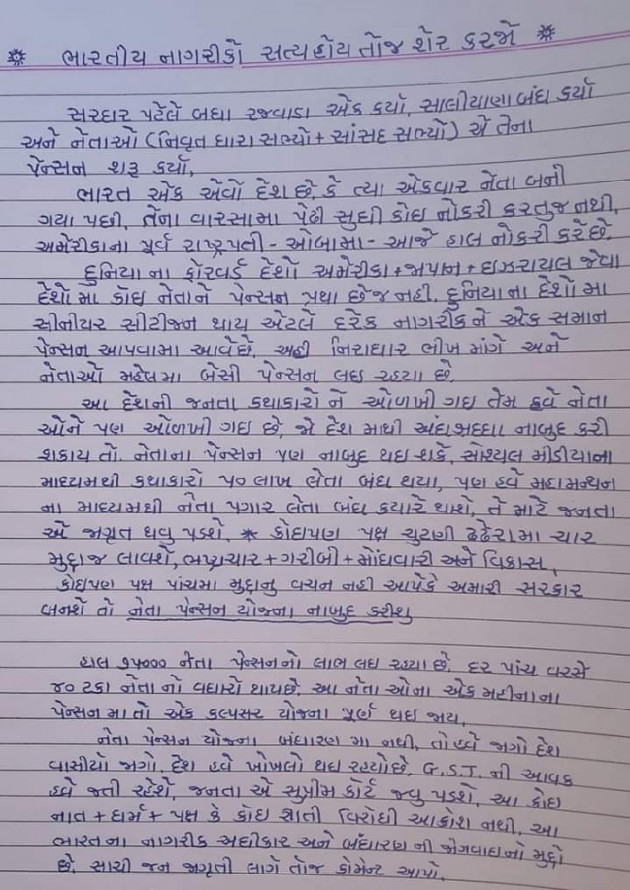 * ભારતીય નાગરીકો સત્યહોય તોજ શેર કરજો *
સરદાર પટેલે બધા રજવાડા એક કર્યા, સાલીયાણા બંધ કર્યા
અને નેતાઓ (નિવૃત ધારાસભ્યો + સાંસદ સભ્યો) એ તેના
પેન્સન શરૂ કર્યા,
ભારત એક એવો દેશ છે, કે ત્યા એકવાર નેતા બની
ગયા પછી, તેના વારસામા પેઢી સુધી કોઇ નોકરી કરતુજ નથી,
અમેરીકાના પૂર્વ રાષ્ટ્રપતી - ઓબામા - આજે હાલ નોકરી કરે છે,
દુનિયા ના ફોરવર્ડ દેશો અમેરીકા + જાપાન + ઇઝરાયલ જેવા
દેશો મા કોઇ નેતાને પેન્સન પ્રથા છેજ નહી, દુનિયાના દેશો મા
સીનીયર સીટીજન થાય એટલે દરેક નાગરીક ને એક સમાન
પેન્સન આપવામા આવેછે, અહી નિરાધાર ભીખ માંગે અને
નેતાઓ મહેલમા બેસી પેન્સન લઇ રહયા છે,
આ દેશની જનતા કથાકારો ને ઓળખી ગઇ તેમ હવે નેતા
ઓને પણ ઓળખી ગઇ છે, જો દેશ માથી અંધશ્રધ્ધા નાબુદ કરી
શકાય તો, નેતાના પેન્સન પણ નાબુદ થઇ શકે, સોશ્યલ મીડીયાના
માધ્યમથી કથાકારો ૫૦ લાખ લેતા બંધ થયા, પણ હવે મહામન્થન
ના માધ્યમથી નેતા પગાર લેતા બંધ કયારે થાશે, તે માટે જનતા
એ જાગૃત થવુ પડશે, * કોઇપણ પક્ષ ચુટણી ઢંઢેરામા ચાર
મુદ્દાજ લાવશે, ભષ્ટાચાર + ગરીબી + મોંઘવારી અને વિકાસ,
કોઇપણ પક્ષ પાંચમા મુદ્દાનુ વચન નહી આપેકે અમારી સરકાર
બનશે તો નેતા પેન્સન યોજના નાબુદ કરીશુ
હાલ ૭૫૦૦૦ નેતા પેન્સનનો લાભ લઇ રહયા છે, દર પાંચ વરસે
૪૦ ટકા નેતા નો વધારો થાયછે, આ નેતા ઓના એક મહીનાના
પેન્સન મા તો એક કલ્પસર યોજના પૂર્ણ થઇ જાય,
નેતા પેન્સન યોજના બંધારણ મા નથી, તો હવે જાગો દેશ
વાસીયો જાગો, દેશ હવે ખોખલો થઇ રહયો છે, G.S.T. ની આવક
હવે જતી રહેશે, જનતા એ સુપ્રીમ કોર્ટ જવુ પડશે, આ કોઇ
નાત + ધર્મ + પક્ષ કે કોઇ જ્ઞાતી વિરોધી આક્રોશ નથી, આ
ભારતના નાગરીક અધીકાર અને બંધારણ ની જોગવાઇનો મુદ્દો
છે, સાચી જન જાગૃતી લાગે તોજ કોમેન્ટ આપો,